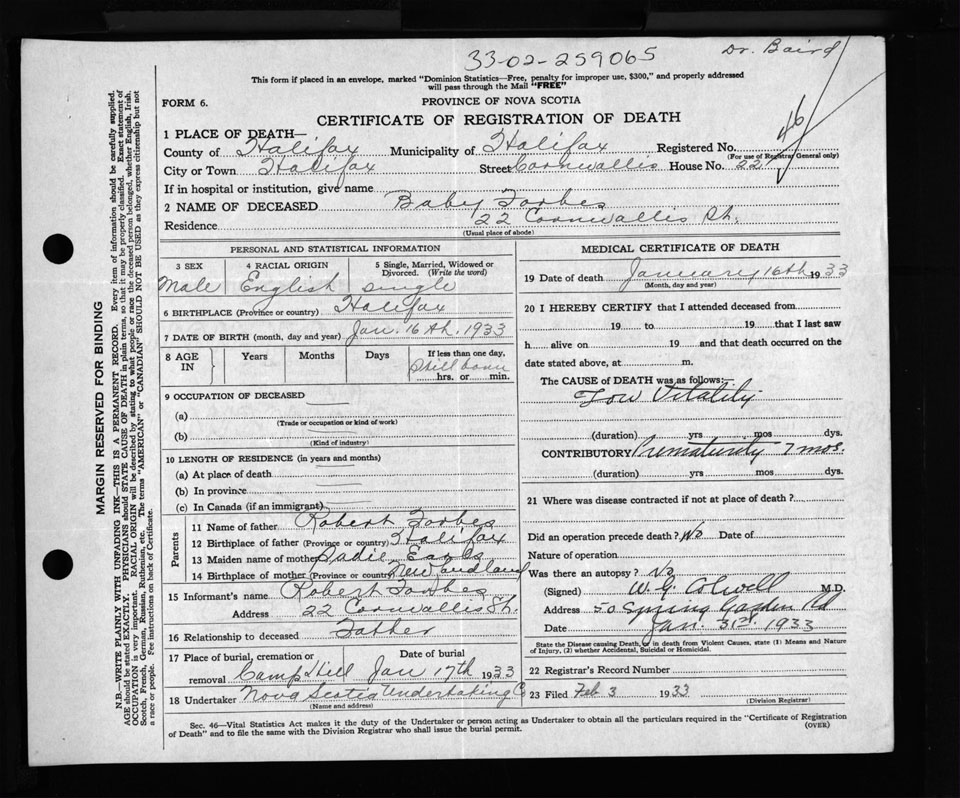 33-02-259065
Dr. Baird
This form if placed in an envelope, marked "Dominion Statistics—Free, penalty for improper use, $300," and properly addressed
will pass through the Mail "FREE"
FORM 6.
PROVINCE OF NOVA SCOTIA
CERTIFICATE OF REGISTRATION OF DEATH
46
1 PLACE OF DEATH—
County of Halifax Municipality of Halifax Registered No.
(For use of Registrar General only)
City or Town Halifax Street Cornwallis House No. 22
If in hospital or institution, give name
2 NAME OF DECEASED Baby Forbes
Residence 22 Cornwallis St.
(Usual place of abode)
PERSONAL AND STATISTICAL INFORMATION
3 SEX 4 RACIAL ORIGIN 5 Single, Married, Widowed or
Divorced. (Write the word)
Male English single
6 BIRTHPLACE (Province or country) Halifax
7 DATE OF BIRTH (month, day and year) Jan. 16th. 1933
8 AGE IN Years Months Days If less than one day,
Still born
hrs. or min.
9 OCCUPATION OF DECEASED
(a)
(Trade or occupation or kind of work)
(b)
(Kind of industry)
10 LENGTH OF RESIDENCE (in years and months)
(a) At place of death
(b) In province
(c) In Canada (if an immigrant)
Parents
11 Name of father Robert Forbes
12 Birthplace of father (Province or country) Halifax
13 Maiden name of mother Sadie Eagle
14 Birthplace of mother (Province or country)
15 Informant's name Robert Forbes
Address 22 Cornwallis St.
16 Relationship to deceased Father
17 Place of burial, cremation or Date of burial
removal Camp Hill Jan 17th 1933
18 Undertaker Nova Scotia Undertaking Co
(Name and address)
MEDICAL CERTIFICATE OF DEATH
19 Date of death January 16th 1933
(Month, day and year)
20 I HEREBY CERTIFY that I attended deceased from
19 to 19 that I last saw
h alive on 19 and that death occurred on the
date stated above, at m.
The CAUSE OF DEATH was as follows:
Low Vitality
(duration) yrs mos dys.
CONTRIBUTORY Prematurity 7 mos.
(duration) yrs mos dys.
21 Where was disease contracted if not at place of death?
Did an operation precede death? No Date of
Nature of operation
Was there an autopsy? No
(Signed) W. G. Colwell M.D.
Address 50 Spring Garden Rd
Date Jan 31st. 1933
State the Disease causing Death, or in death from Violent Causes, state (1) Means and Nature
of Injury, (2) whether Accidental, Suicidal or Homicidal.
22 Registrar's Record Number
23 Filed Feb 3 1933
(Division Registrar)
Sec. 46—Vital Statistics Act makes it the duty of the Undertaker or person acting as Undertaker to obtain all the particulars required in the "Certificate of Registration
of Death" and to file the same with the Division Registrar who shall issue the burial permit.
(OVER)
MARGIN RESERVED FOR BINDING
N.B.—WRITE PLAINLY WITH UNFADING INK—THIS IS A PERMANENT RECORD. Every item of information should be carefully supplied.
AGE should be stated EXACTLY. PHYSICIANS should STATE CAUSE OF DEATH in plain terms, so that it may be properly classified. Exact statement of
OCCUPATION is very important. RACIAL ORIGIN will be described by stating to what people or race the deceased person belonged, whether English, Irish,
Scotch, French, German, Russian, Ruthenian, etc. The terms "AMERICAN" or "CANADIAN" SHOULD NOT BE USED as they express citizenship but not
a race or people. See instructions on back of Certificate.